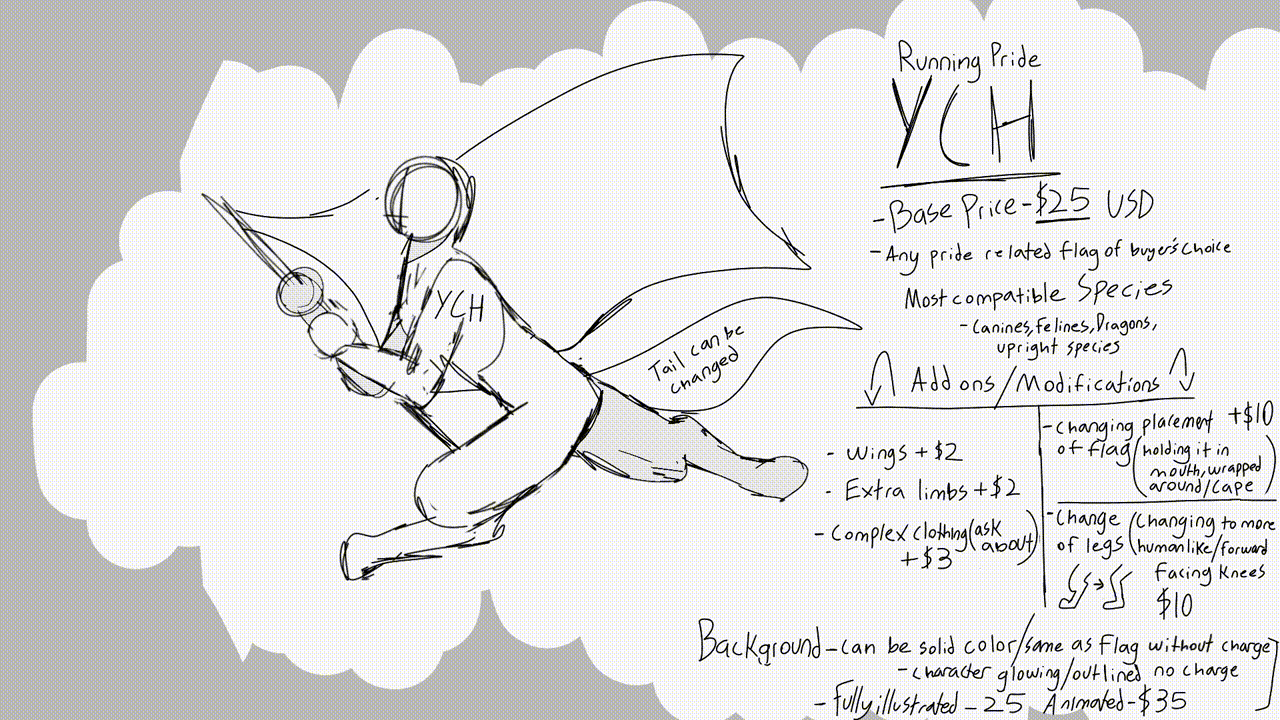 Running Pride
YCH
-Base Price-$25 USD
-Any pride related flag of buyer's choice
Most compatible Species
-Canines, felines, Dragons,
upright species
Add ons/Modifications
- Wings +$2
- Extra limbs +$2
- Complex clothing (ask about)
+$3
-changing placement +$10
of flag (holding it in
mouth, wrapped
around/cape)
-Change (Changing to more
of legs humanlike/forward
facing knees
$10
Background-can be solid color/same as flag without charge
-character glowing/outlined no charge
-Fully illustrated - 25 Animated-$35
YCH
Tail can be
changed